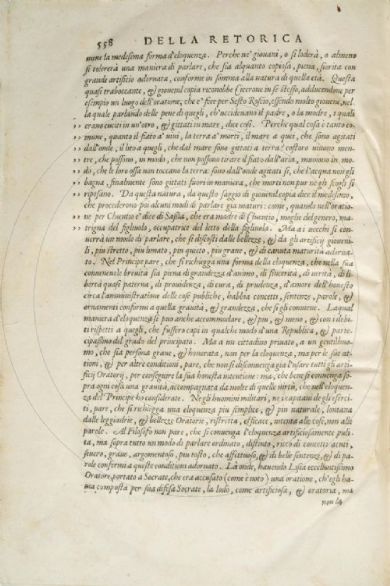 558 DELLA RETORICA
mune la medesima forma d'eloquenza. Perche ne' giouani, o si loderà, o almeno
si tolererà una maniera di parlare, che sia alquanto copiosa, piena, fiorita con
grande artificio adornata, conforme in somma alla natura di quella età. Questa
quasi traboccante, & giouenil copia riconobbe Cicerone in se stesso, adducendone per
essempio un luogo dell'oratione, che e' fece per Sesto Roscio, essendo molto giouene, nel
la quale parlando delle pene di quegli, ch'uccideuano il padre, o la madre, i quali
erano cuciti in un' & gittati in mare, dice così. Perche qual cosa è tanto co-
mune, quanto il fiato a' uiui, la terra a' morti, il mare a que', che sono agitati
dall'onde, il lito a quegli, che dal mare sono gittati a terra? costoro uiuono men-
tre, che possono, in modo, che non possono tirare il fiato dall'aria, muoiono in mo-
do, che le loro ossa non toccano la terra: sono dall'onde agitati sì, che l'acqua non gli
bagna, finalmente sono gittati fuori in maniera, che morti non pur negli scogli si
riposano. Da questa natura, da questo saggio di giouenil copia dice il medesimo,
che procederono più alcuni modi di parlare già maturi: come, quando nell'oratio-
ne per Cluentio e' dice di Sassia, che era madre di Cluentio, moglie del genero, ma-
trigna del figliuolo, occupatrice del letto della figliuola. Ma a i uecchi si con-
uerrà un modo di parlare, che si discosti dalle bellezze, & da gli artificij gioueni-
li, più stretto, più limato, più quieto, più graue, & di canuta maturità adorna-
to. Nel Principe pare, che si richegga una forma della eloquenza, che nella sua
conueneuole breuità sia piena di grandezza d'animo, di sincerità, di uerità, di li-
bertà quasi paterna, di prouidenza, di cura, di prudenza, d'amore dell'honesto
circa l'amministration delle cose publiche, habbia concetti, sentenze, parole, &
ornamenti conformi a quella grauità, & grandezza, che segli conuiene. La qual
maniera d'eloquenza si può anche accommodare, & più, & meno, & con i debi-
ti rispetti a quegli, che fussero capi in qualche modo d'una Republica, & parte-
cipassino del grado del principato. Ma a un cittadino priuato, a un gentilhuo-
mo, che sia persona graue, & honorata, non per la eloquenza, ma per le sue at-
tioni, & per altre conditioni, pare, che non si disconuenga già l'usare tutti gli arti-
ficij Oratorij, per conseguire la sua honesta intentione: ma, che bene si conuenga so-
pra ogni cosa una grauità, accompagnata da molte di quelle uirtù, che nell'eloquen-
za del Principe ho considerate. Ne gli huomini militari, ne i capitani de gli eserci-
ti, pare, che si richegga una eloquenza più simplice, & più naturale, lontana
dalle leggiadrie, & bellezze Oratorie, ristretta, efficace, intenta alle cose, non alle
parole. Al Filosofo non pare, che si conuenga l'eloquenza artificiosamente puli-
ta, ma sopra tutto un modo di parlare ordinato, distinto, ricco di concetti acuti,
seuero, graue, argomentoso, più tosto, che affettuoso, & di belle sentenze, & di pa-
role conformi a queste conditioni adornato. Là onde, hauendo Lisia eccellentissimo
Oratore, portato a Socrate, che era accusato (come è noto) una oratione, ch'egli ha-
ueua composta per sua difesa Socrate, la lodò, come artificiosa, & oratoria, ma
non la